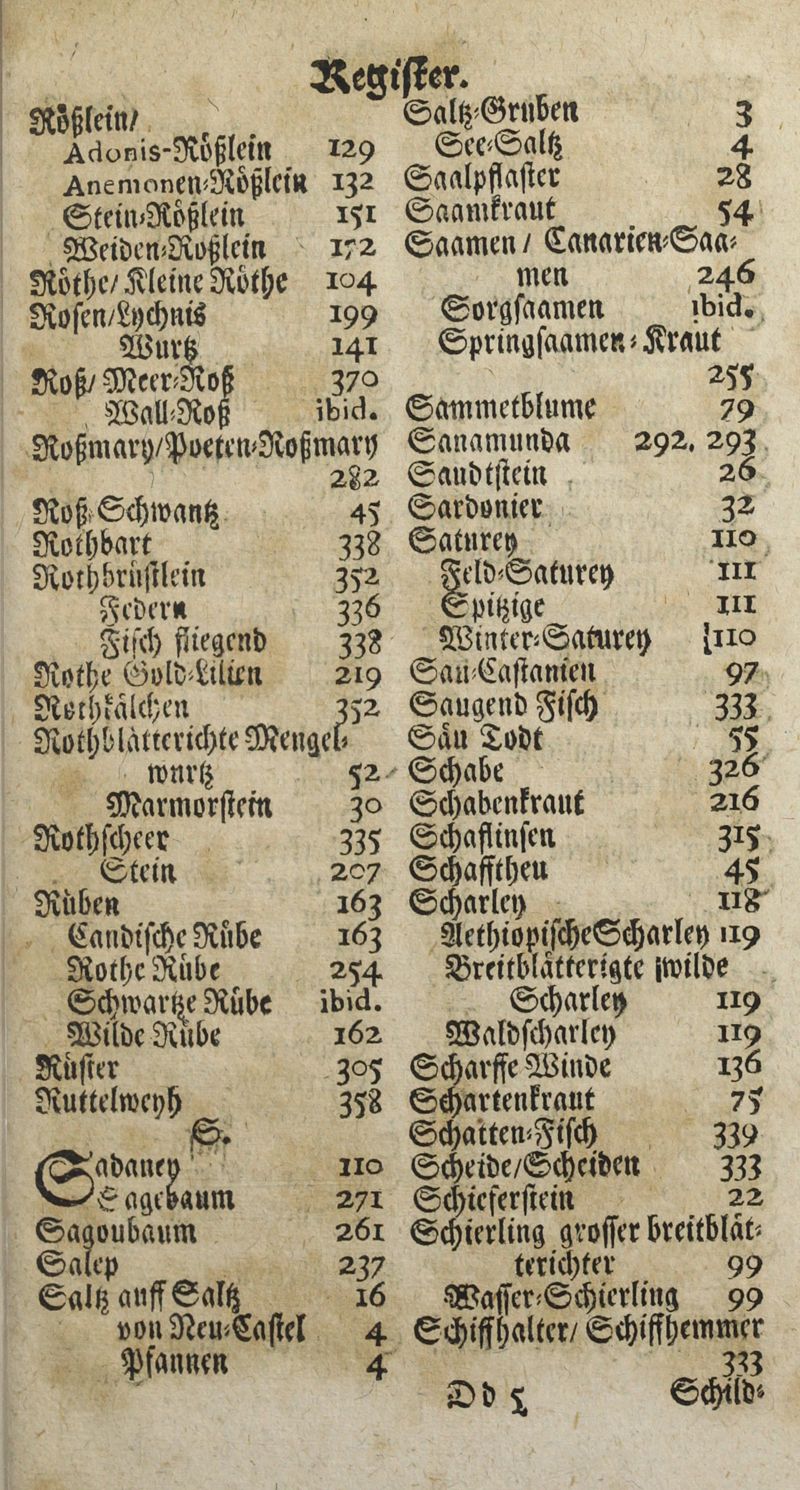 Register.
Rößlein/
Adonis-Rößlein 129
Anemonen-Rößlein 132
Stein-Rößlein 151
Weiden-Rößlein 172
Röthe/ Kleine Röthe 104
Rosen/Lychnis 199
Wurtz 141
Roß/ Meer-Roß 370
Wall-Roß ibid.
Roßmary/Poeten-Roßmary
282
Roß-Schwantz 45
Rothbart 338
Rothbrüstlein 352
Federn 336
Fisch fliegend 338
Rothe Gold-Lilien 219
Rothkälchen 352
Rothblätterichte Mengel-
wurtz 52
Marmorstein 30
Rothscheer 335
Stein 207
Rüben 163
Candische Rübe 163
Rothe Rübe 254
Schwartze Rübe ibid.
Wilde Rübe 162
Rüster 305
Ruttelweyh 358
S.
Sabaney 110
Sagebaum 271
Sagoubaum 261
Salep 237
Saltz auff Saltz 16
von Neu-Castel 4
Pfannen 4
Saltz-Gruben 3
See-Saltz 4
Saalpflaster 28
Saamkraut 54
Saamen / Canarien-Saa-
men 246
Sorgsaamen ibid.
Springsaamen-Kraut
255
Sammetblume 79
Sanamunda 292. 293
Saubtstein 26
Sardonier 32
Saturey 110
Feld-Saturey 111
Spitzige 111
Winter-Saturey [110
Sau-Castanien 97
Saugend Fisch 333
Säu Todt 55
Schabe 326
Schabenkraut 216
Schaflinsen 315
Schafftheu 45
Scharley 118
Aethiopische Scharley 119
Breitblätterigte wilde
Scharley 119
Waldscharley 119
Scharffe Winde 136
Schartenkraut 75
Schatten-Fisch 339
Scheide/Scheiden 333
Schieferstein 22
Schierling grosser breitblät-
terichter 99
Wasser-Schierling 99
Schiffhalter/ Schiffhemmer
333
Dd 5 Schild-